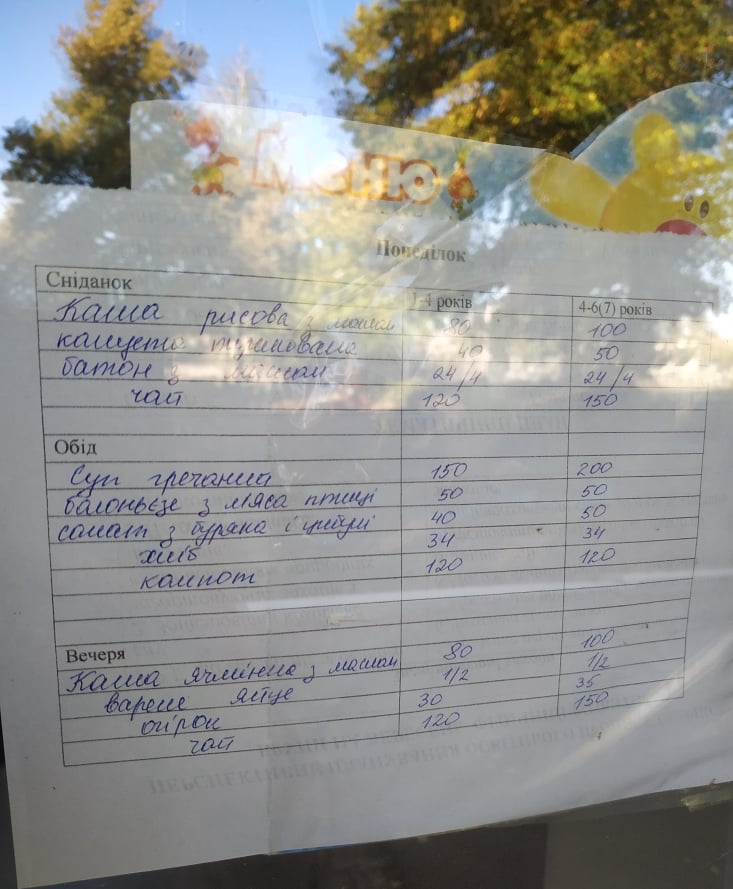 Меню
Понеділок
Сніданок 1-4 років 4-6(7) років
Каша рисова з маслом 80 100
капуста тушкована 40 50
батон з маслом 24/4 24/4
чай 120 150
Обід
Суп гречаний 150 200
балоньєзе з м'яса птиці 50 50
салат з буряка і цибулі 40 50
хліб 34 34
компот 120 120
Вечеря
Каша ячмінна з маслом 80 100
варене яйце 1/2 1/2
огірок 30 35
чай 120 150